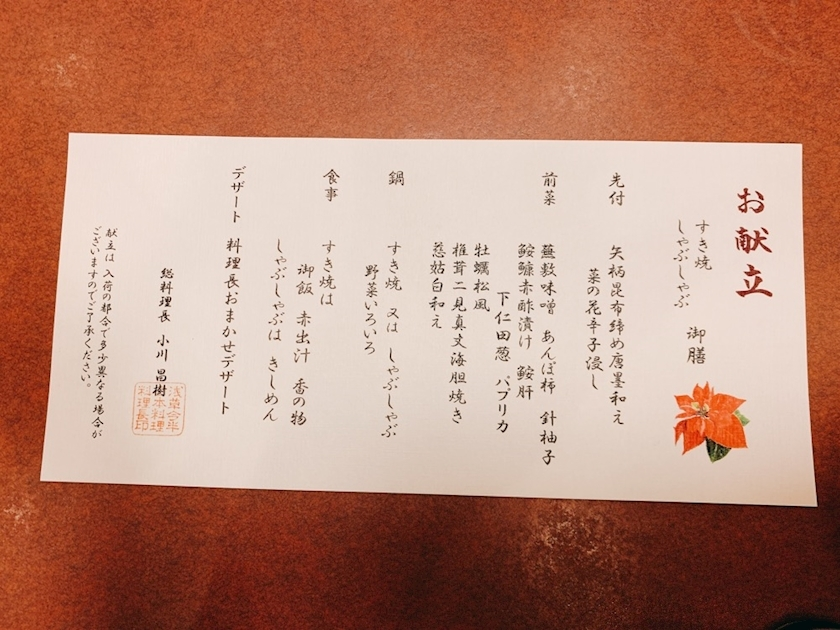 お献立
すき焼
しゃぶしゃぶ 御膳
先付 矢柄昆布締め唐墨和え
菜の花辛子浸し
前菜 蕪敷味噌 あんぽ柿 針柚子
鮟鱇赤酢漬け 鮟肝
下仁田葱 パプリカ
牡蠣松風
椎茸二見真丈海胆焼き
慈姑白和え
鍋 すき焼 又は しゃぶしゃぶ
野菜いろいろ
食事 すき焼は
御飯 赤出汁 香の物
しゃぶしゃぶは きしめん
デザート 料理長おまかせデザート
総料理長 小川 昌樹
献立は入荷の都合で多少異なる場合が
ございますのでご了承ください。